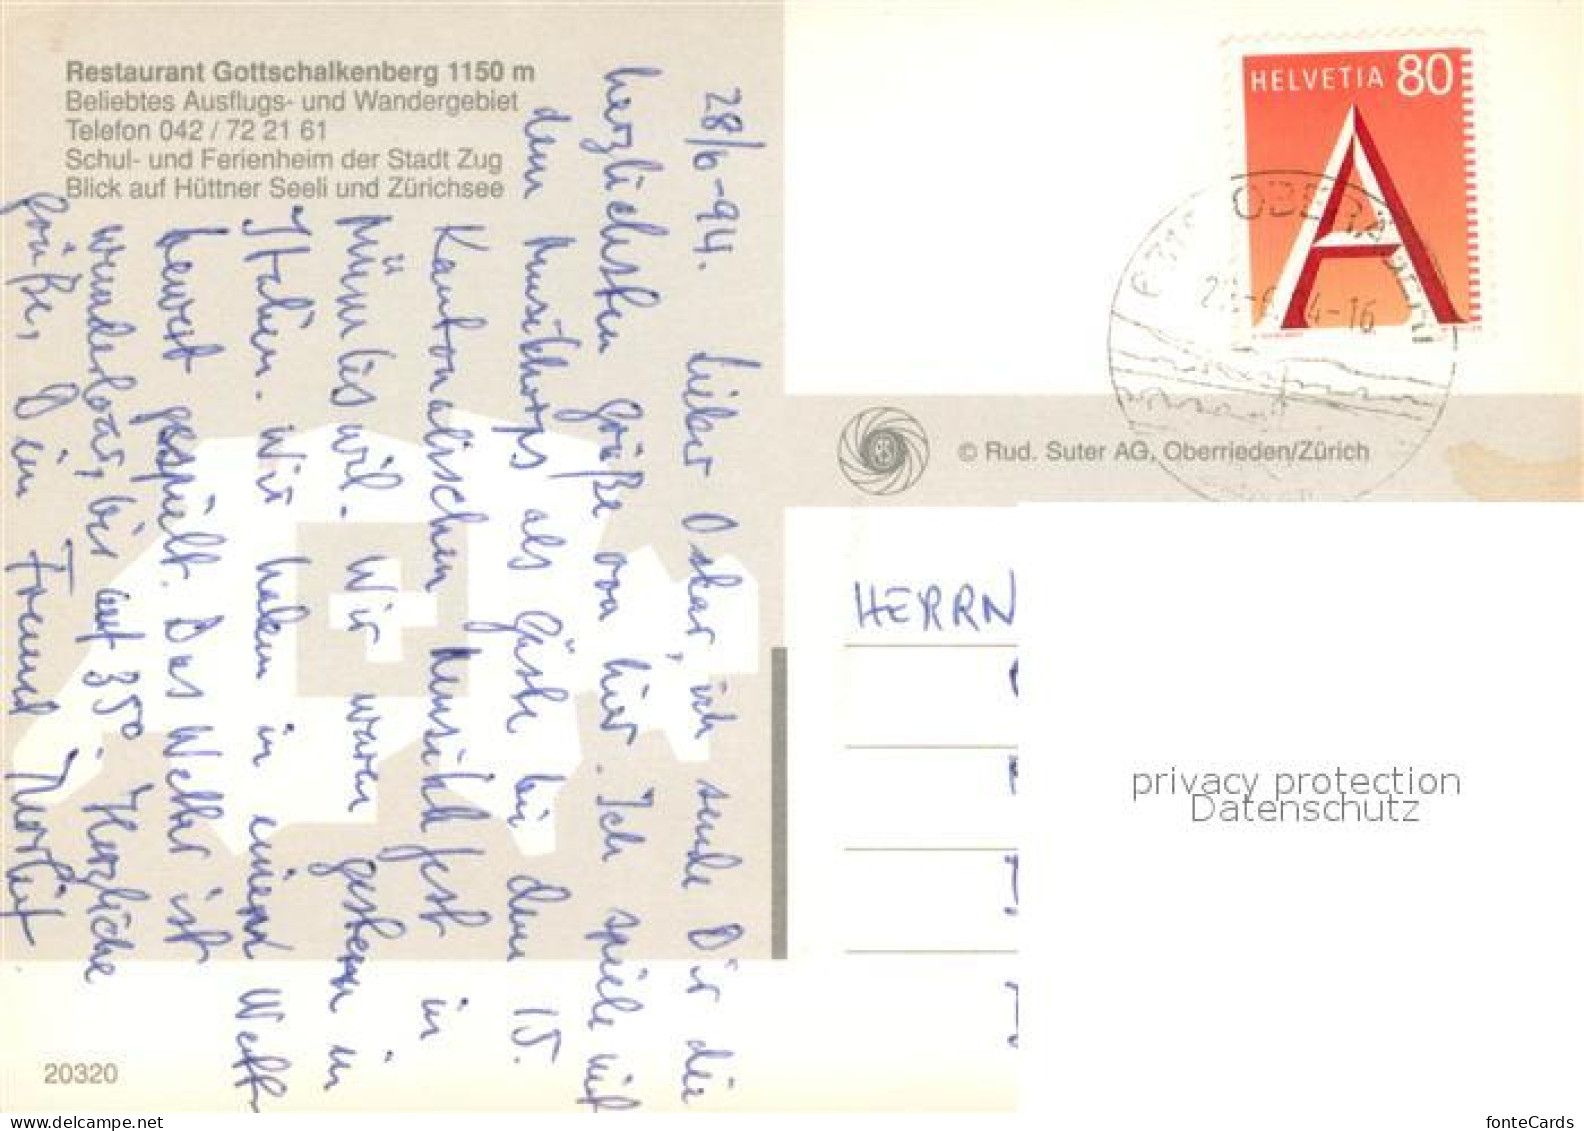 Restaurant Gottschalkenberg 1150 m
Beliebtes Ausflugs- und Wandergebiet
Telefon 042 / 72 21 61
Schul- und Ferienheim der Stadt Zug
Blick auf Hüttner Seeli und Zürichsee
28/6-94.
Lieber Oskar, ich sende Dir die
herzlichsten Grüße von hier. Ich spiele mit
dem Musikkorps als Gäste bei dem 15.
Kantonalischen Musikfest in
Mümliswil. Wir waren gestern in
Italien. Wir haben in einem Wett
bewerb gespielt. Das Wetter ist
wunderbar, bis auf 350. Herzliche
Grüße, Dein Freund
20320
HELVETIA 80
A
© Rud. Suter AG, Oberrieden/Zürich
HERRN
privacy protection
Datenschutz
www.delcampe.net
fonteCards